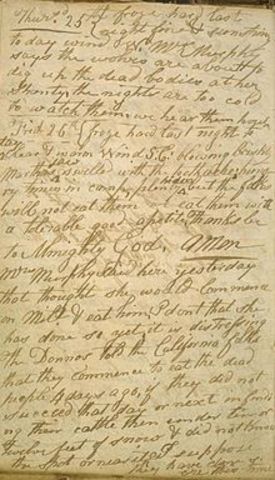 Thursd. 25th froze hard last
night fine & sunshiney
to day wind W. Mrs Murphy
says the wolves are about to
dig up the dead bodies at her
shanty, the nights are too cold
to watch them, we hear them howl
Frid 26th froze hard last night to
day clear & warm Wind S.E. blowing briskly
Marthas jaw swelled with the toothache; hung
ry times in camp, plenty hides but the folks
will not eat them we eat them with
a tolerable good apetite. Thanks be
to Almighty God. Amen
Mrs Murphy said here yesterday
that thought she would commence
on Milt. & eat him. I dont that she
has done so yet, it is distressing
The Donnos told the California folks
that they commence to eat the dead
people 4 days ago, if they did not
succeed that day or next in findi
ng their cattle then under ten or
twelve feet of snow & did not know
the spot or near it, I suppose
They have done so
ere this time